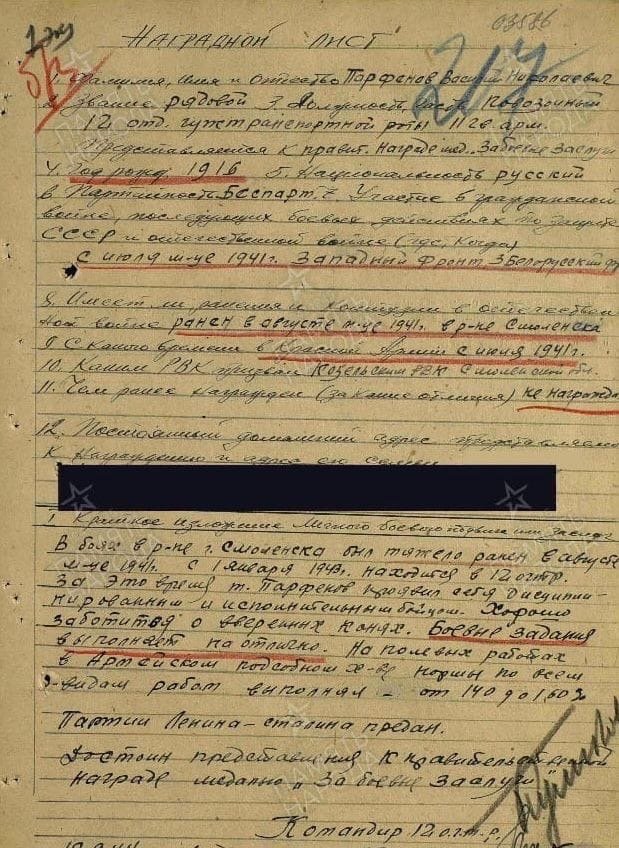 03586
НАГРАДНОЙ ЛИСТ
1. Фамилия, имя и отчество Парфенов Василий Николаевич
2. Звание рядовой 3. Должность, часть Повозочный
12 отд. гужтранспортной роты 11 гв. арм.
Представляется к правит. награде мед. "За боевые заслуги
4. Год рожд. 1916 5. Национальность русский
6. Партийность Беспарт. 7. Участие в гражданской
войне, последующих боевых действиях по защите
СССР и отечественной войне (где, когда)
с июля м-це 1941 г. Западный фронт, 3 Белорусский фр
8. Имеет ли ранения и контузии в отечествен
ной войне ранен в августе м-це 1941г. в р-не Смоленска
9. С какого времени в Красной Армии с июля 1941 г.
10. Каким РВК призван Козельским РВК Смоленской обл.
11. Чем ранее награжден (за какие отличия) не награжда
12. Постоянный домашний адрес представляемого
к награждению и адрес его семьи
1. Краткое изложение личного боевого подвига или заслуг
В боях в р-не г. Смоленска был тяжело ранен в августе
м-це 1941г. С 1 января 1943г. находится в 12 огтр.
За это время т. Парфенов проявил себя дисципли-
нированным и исполнительным бойцом. Хорошо
заботится о вверенных конях. Боевые задания
выполняет на отлично. На полевых работах
в Армейском подсобном х-ве нормы по всем
видам работ выполнял - от 140 до 150%
Партии Ленина-Сталина предан.
Достоин представления к правительственной
награде медалью "За боевые заслуги"
Командир 12 о.г.т.р.